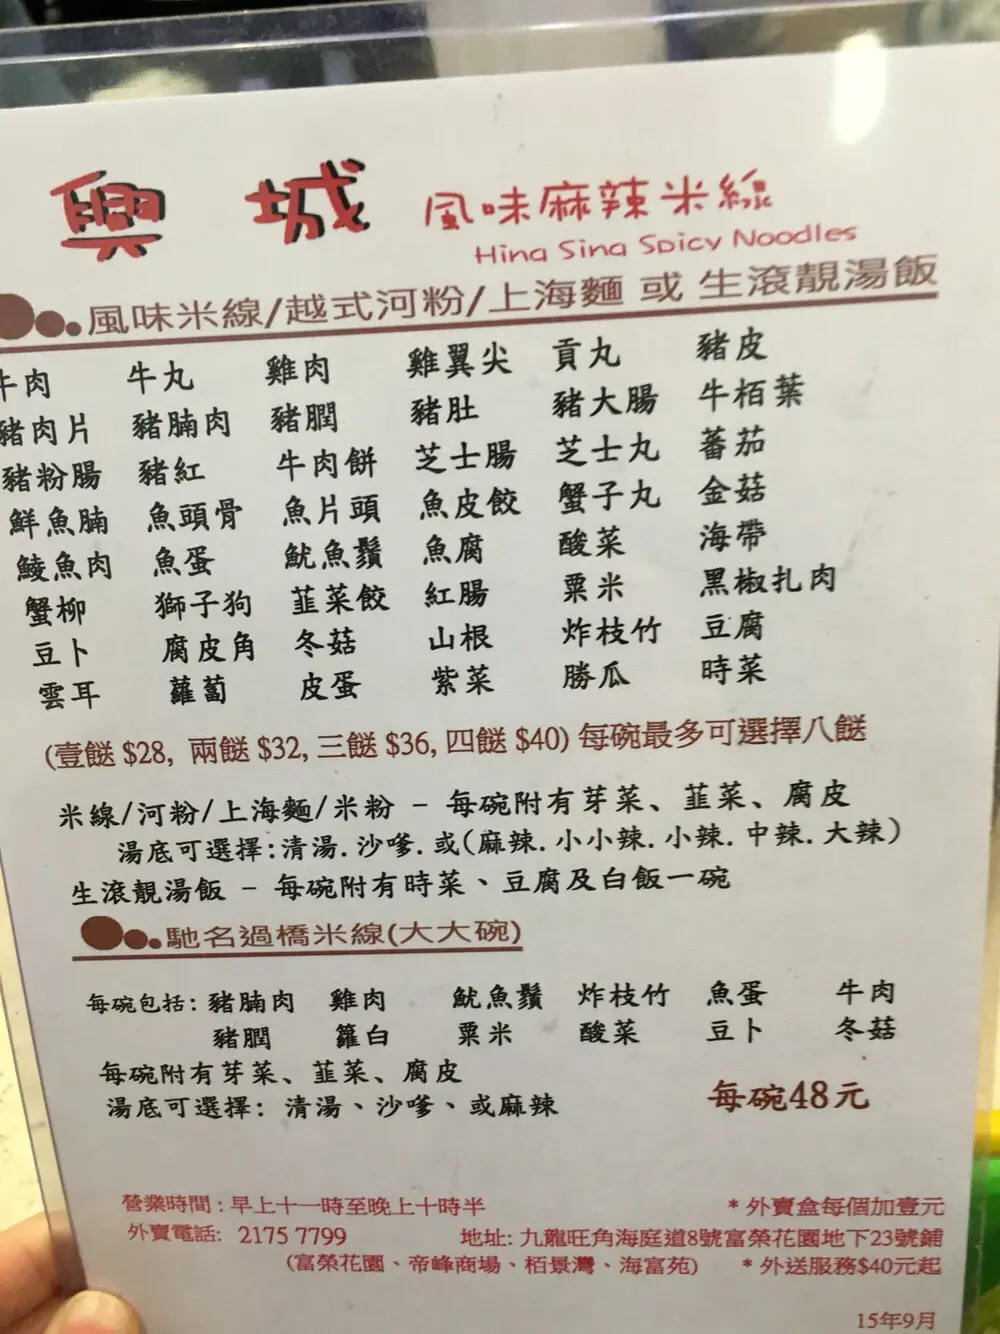 興城 風味麻辣米線
Hing Sing Spicy Noodles
風味米線/越式河粉/上海麵 或 生滾靚湯飯
牛肉 牛丸 雞肉 雞翼尖 貢丸 豬皮
豬肉片 豬腩肉 豬膶 豬肚 豬大腸 牛栢葉
豬粉腸 豬紅 牛肉餅 芝士腸 芝士丸 蕃茄
鮮魚腩 魚頭骨 魚片頭 魚皮餃 蟹子丸 金菇
鯪魚肉 魚蛋 魷魚鬚 魚腐 酸菜 海帶
蟹柳 獅子狗 韮菜餃 紅腸 粟米 黑椒扎肉
豆卜 腐皮角 冬菇 山根 炸枝竹 豆腐
雲耳 蘿蔔 皮蛋 紫菜 勝瓜 時菜
(壹餸 $28, 兩餸 $32, 三餸 $36, 四餸 $40) 每碗最多可選擇八餸
米線/河粉/上海麵/米粉 - 每碗附有芽菜、韮菜、腐皮
湯底可選擇:清湯.沙嗲.或(麻辣.小小辣.小辣.中辣.大辣)
生滾靚湯飯 - 每碗附有時菜、豆腐及白飯一碗
馳名過橋米線(大大碗)
每碗包括: 豬腩肉 雞肉 魷魚鬚 炸枝竹 魚蛋 牛肉
豬膶 籮白 粟米 酸菜 豆卜 冬菇
每碗附有芽菜、韮菜、腐皮
湯底可選擇: 清湯、沙嗲、或麻辣
每碗48元
營業時間 : 早上十一時至晚上十時半 * 外賣盒每個加壹元
外賣電話: 2175 7799 地址: 九龍旺角海庭道8號富榮花園地下23號鋪
(富榮花園、帝峰商場、栢景灣、海富苑) * 外送服務$40元起
15年9月